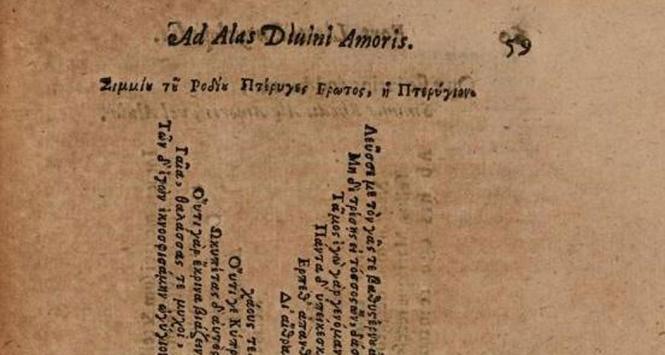 Ad Alas Diuini Amoris. 59
Σιμμίου τοῦ Ροδίου Πτέρυγες Ερωτος, ἢ Πτερύγιον.
Λεῦσσέ με τὸν γᾶς τε
Μὴ δὲ τρέσῃς εἰ τόσσος ὢν, δασ
Τᾶμος ἐγὼ γὰρ γενόμαν
Πάντα δ' ὑπείκεσκ
Ερπεθ' ἀπανθ
Δι' αἴθρα
χάους τε
Οὔτι γε Κύπρ
Ωκυπέτας δ' αὐτὸς
Οὔτι γὰρ ἔκρινα βιάζειν
Γαῖα, θαλάσσας τε μυχοὶ,
Τῶν δ' ἐγὼν ἐκνοσφισάμην ὠγύγιον